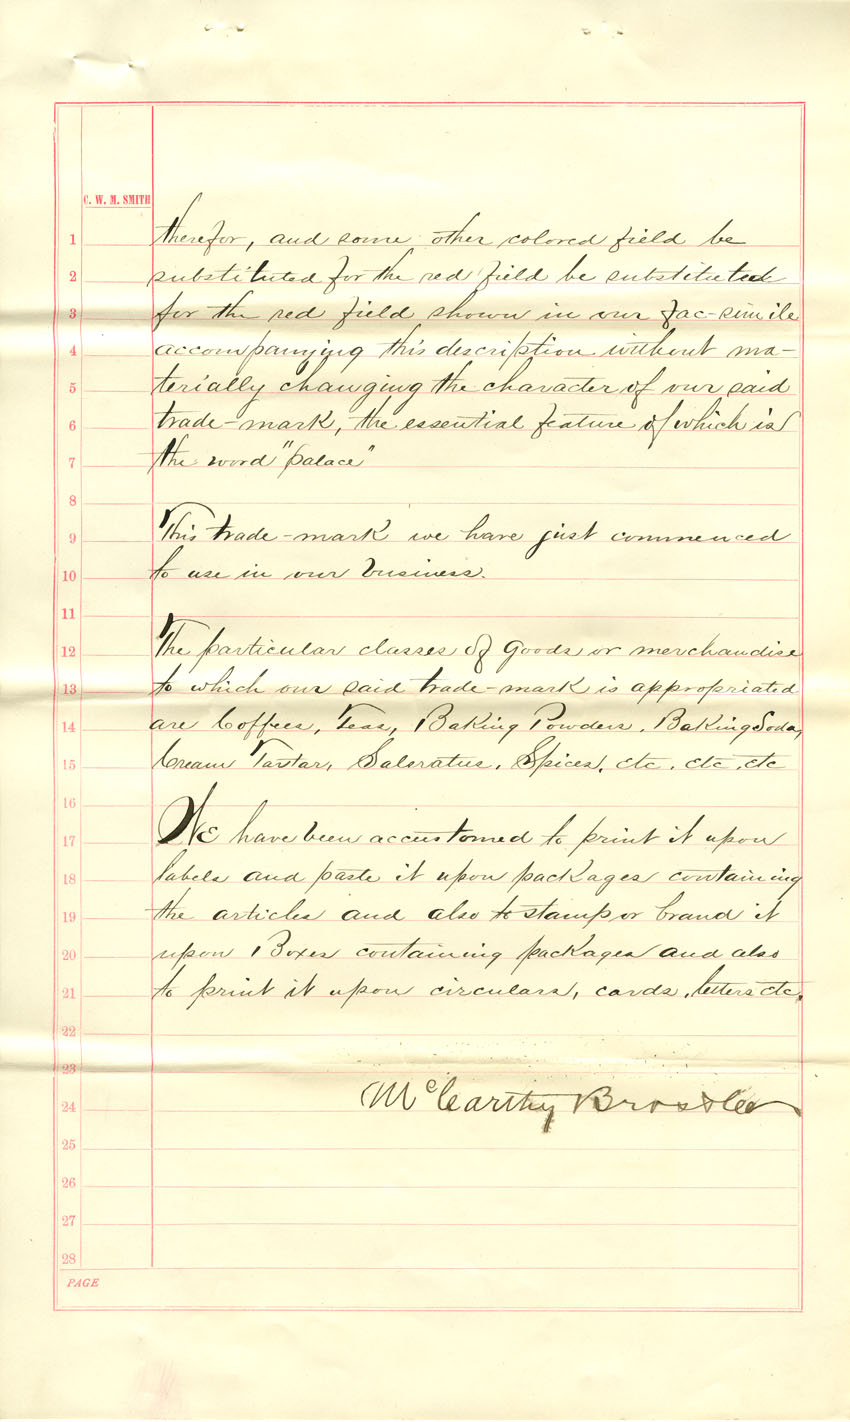 C. W. M. SMITH
1 therefor, and some other colored field be
2 substituted for the red field be substituted
3 for the red field shown in our fac-simile
4 accompanying this description without ma-
5 terially changing the character of our said
6 trade-mark, the essential feature of which is
7 the word "palace"
8
9 This trade-mark we have just commenced
10 to use in our business.
11
12 The particular classes of goods or merchandise
13 to which our said trade-mark is appropriated
14 are Coffees, Teas, Baking Powders, Baking Soda,
15 Cream Tartar, Salsratus, Spices, etc, etc, etc
16
17 We have been accustomed to print it upon
18 labels and paste it upon packages containing
19 the articles and also to stamp or brand it
20 upon Boxes containing packages and also
21 to print it upon circulars, cards, letters etc.
22
23
24 McCarthy Bros & Co
25
26
27
28
PAGE